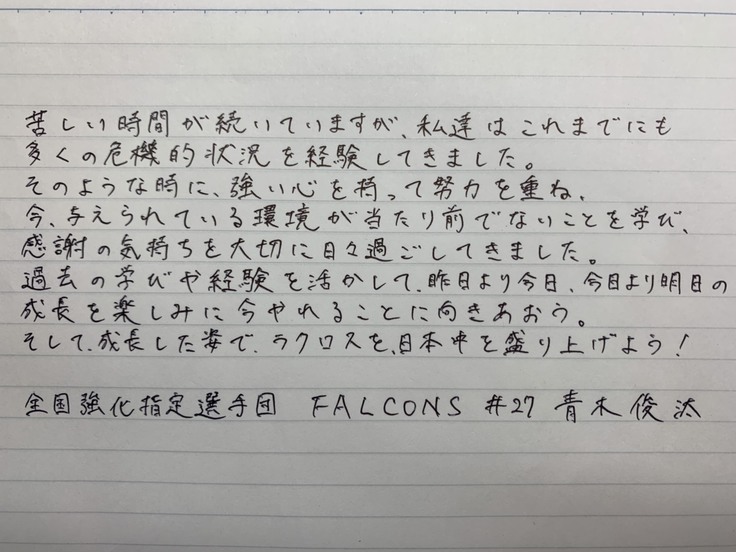 苦しい時間が続いていますが、私達はこれまでにも
多くの危機的状況を経験してきました。
そのような時に、強い心を持って努力を重ね、
今、与えられている環境が当たり前でないことを学び、
感謝の気持ちを大切に日々過ごしてきました。
過去の学びや経験を活かして、昨日より今日、今日より明日の
成長を楽しみに今やれることに向きあおう。
そして、成長した姿で、ラクロスを、日本中を盛り上げよう!
全国強化指定選手団 FALCONS #27 青木俊汰